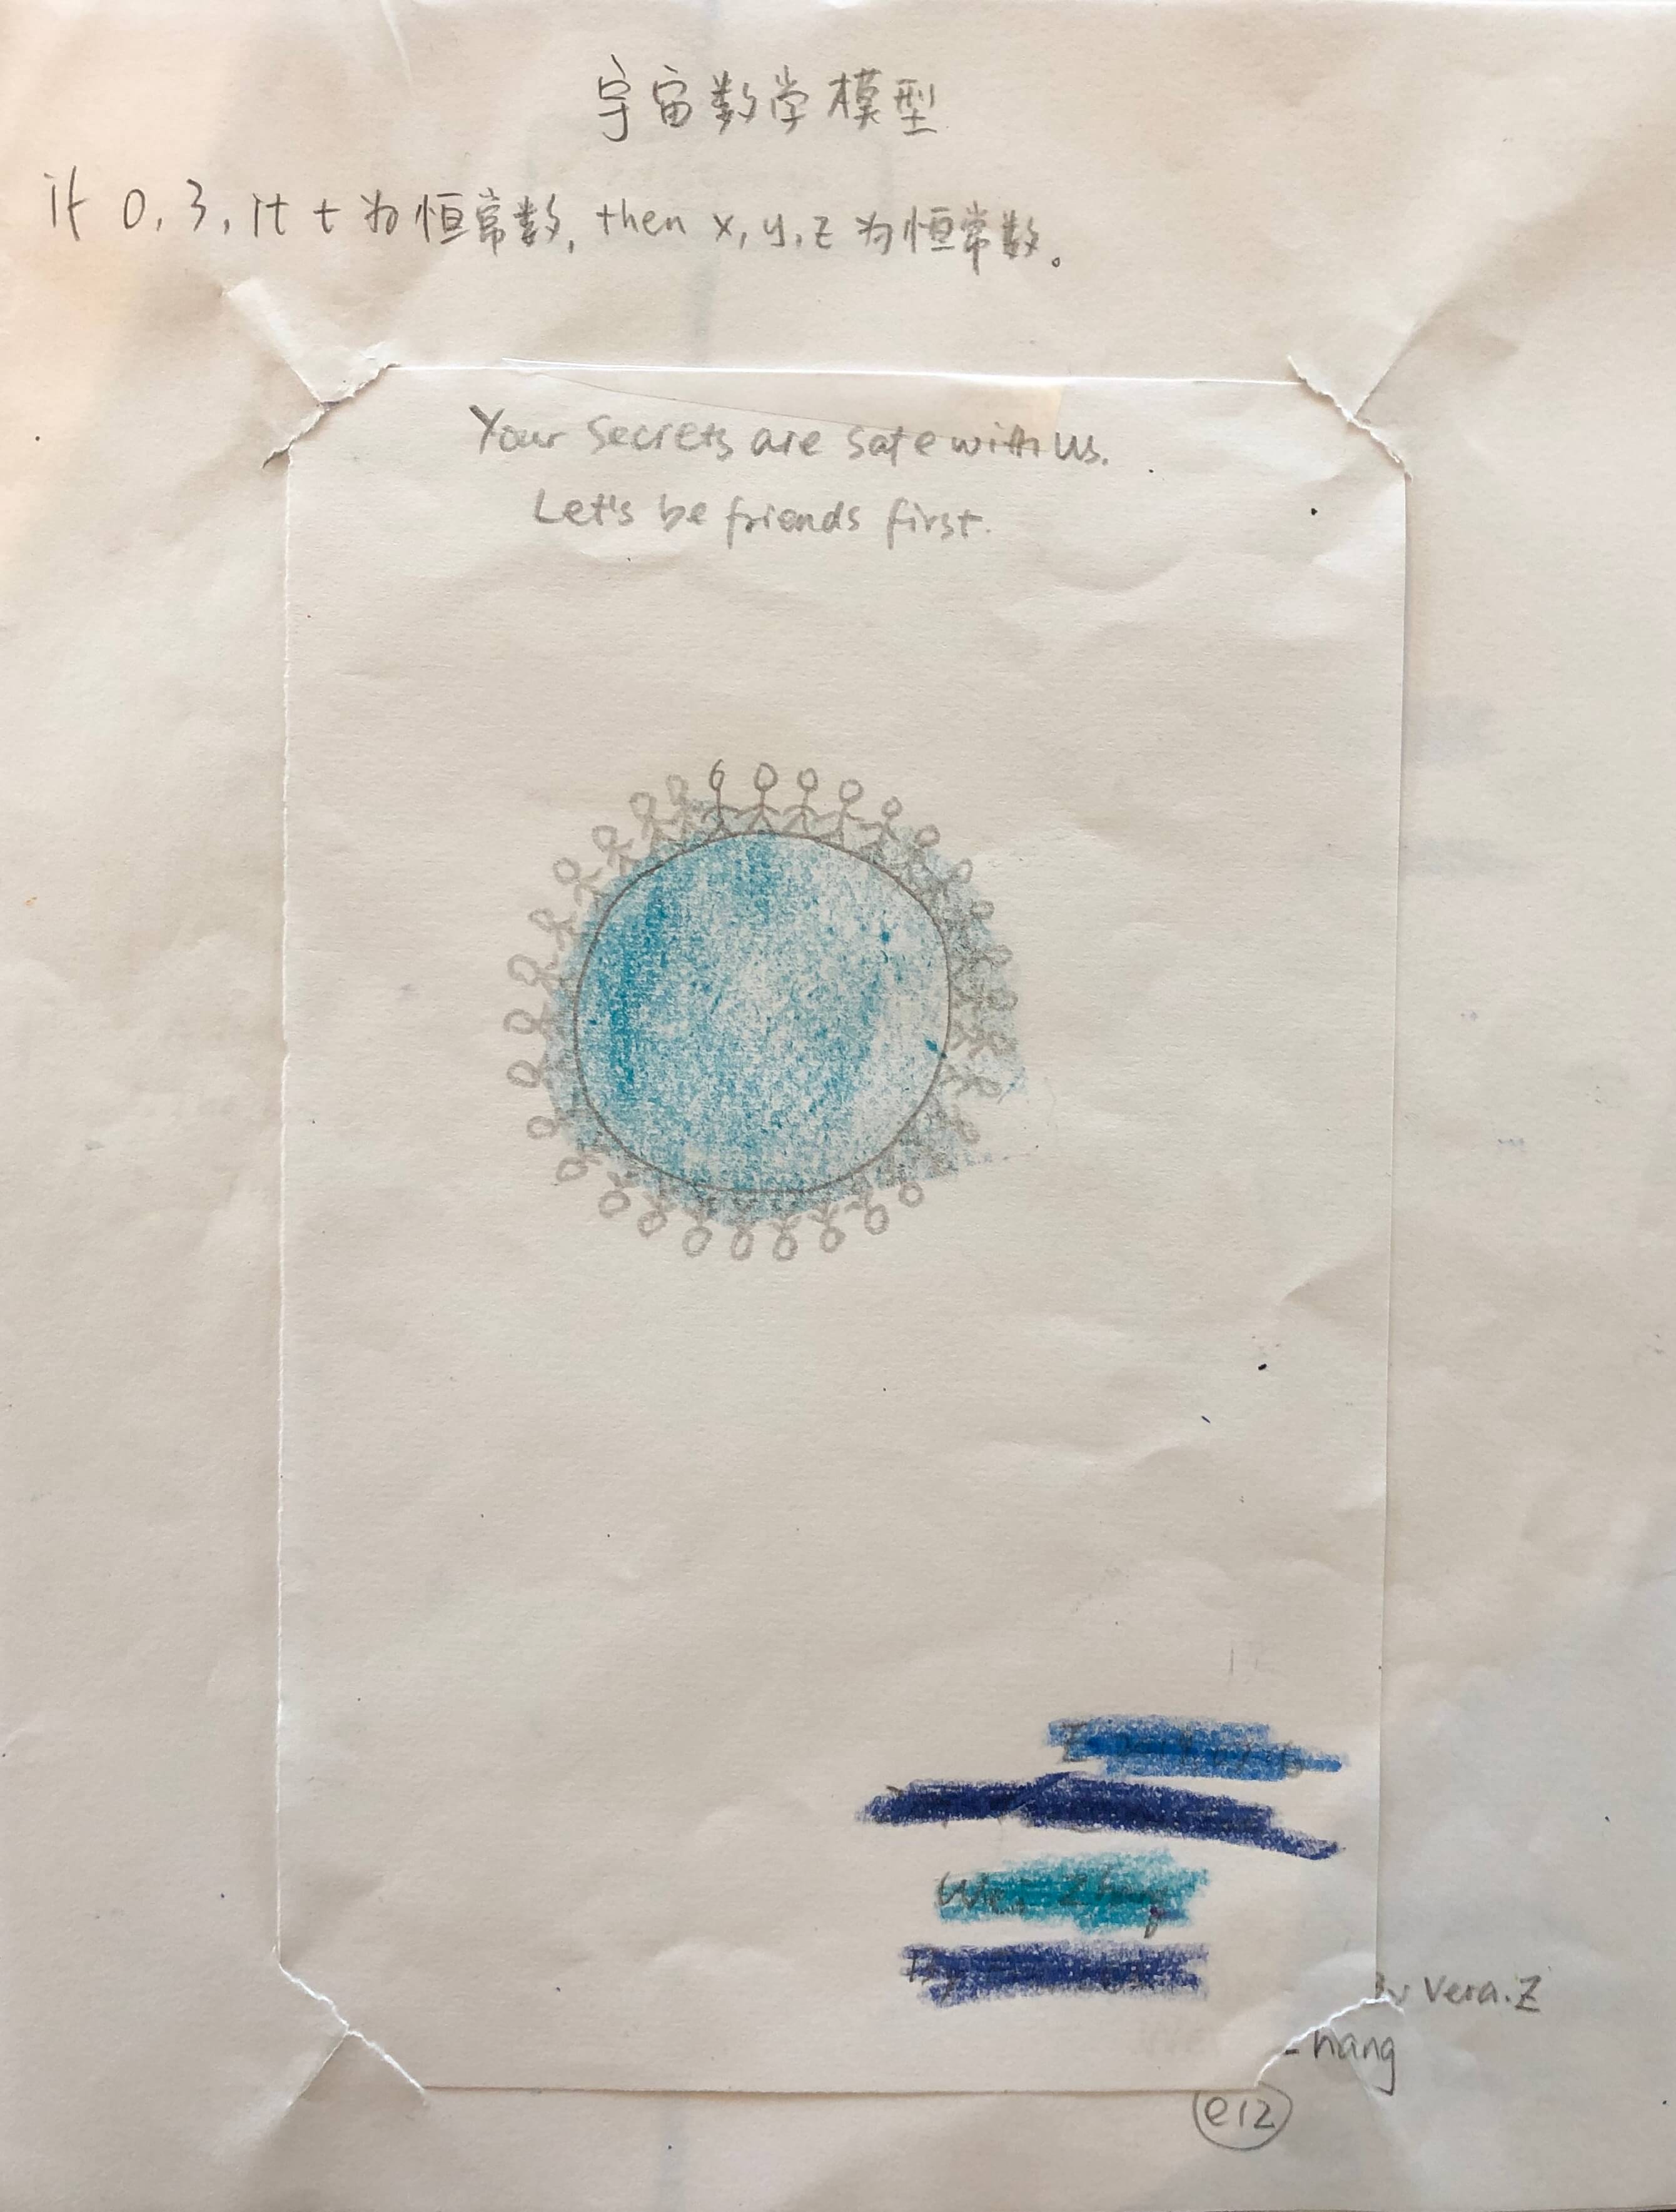 宇宙数学模型
if 0, 3, it t为恒常数, then x, y, z 为恒常数。
Your secrets are safe with us.
Let's be friends first.
Wei Zhang
By Vera.Z
hang
e12